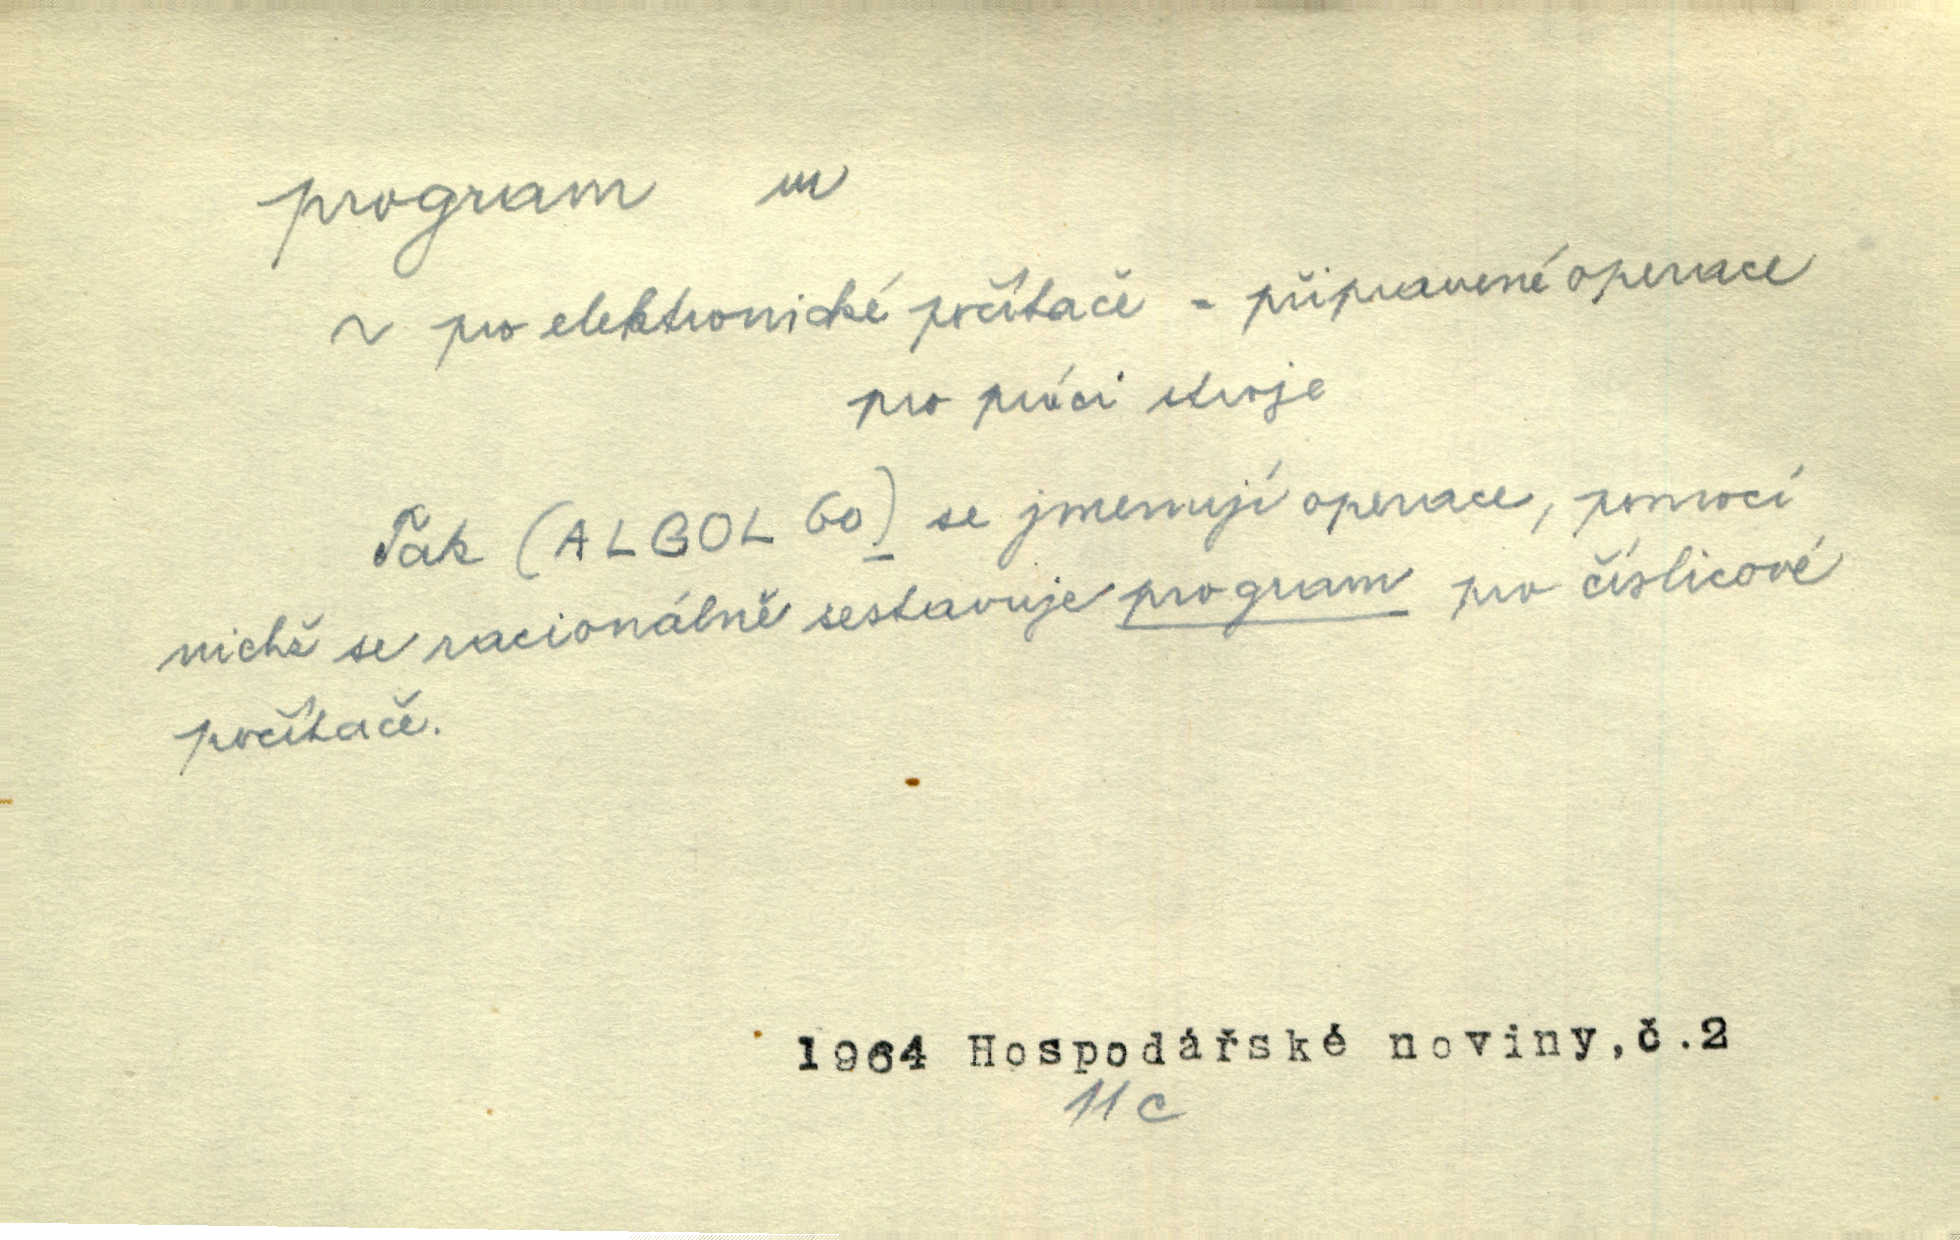 program m
~ pro elektronické počítače - připravené operace
pro práci stroje
Tak (ALGOL 60) se jmenují operace, pomocí
nichž se racionálně sestavuje program pro číslicové
počítače.
1964 Hospodářské noviny,č.2
11 c